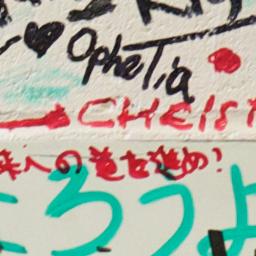 ♥ OpheTia
CHEIST
来への道を進め!
ろうよ